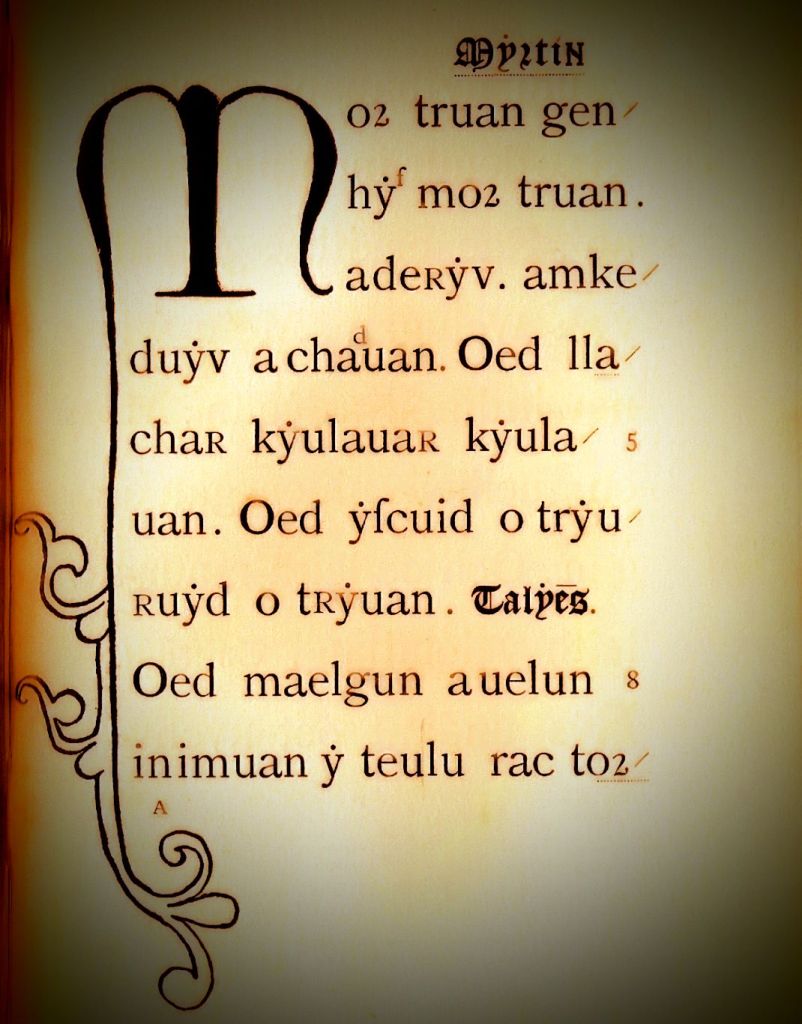 Mẏꝛtin
Moꝛ truan gen⸝
hẏf moꝛ truan.
adeʀẏv. amke⸝
duẏv a chaduan. Oed lla⸝
chaʀ kẏulauaʀ kẏula⸝ 5
uan. Oed ẏſcuid o trẏu⸝
ʀuẏd o tʀẏuan. Talẏēs.
Oed maelgun auelun 8
inimuan ẏ teulu rac toꝛ⸝
A